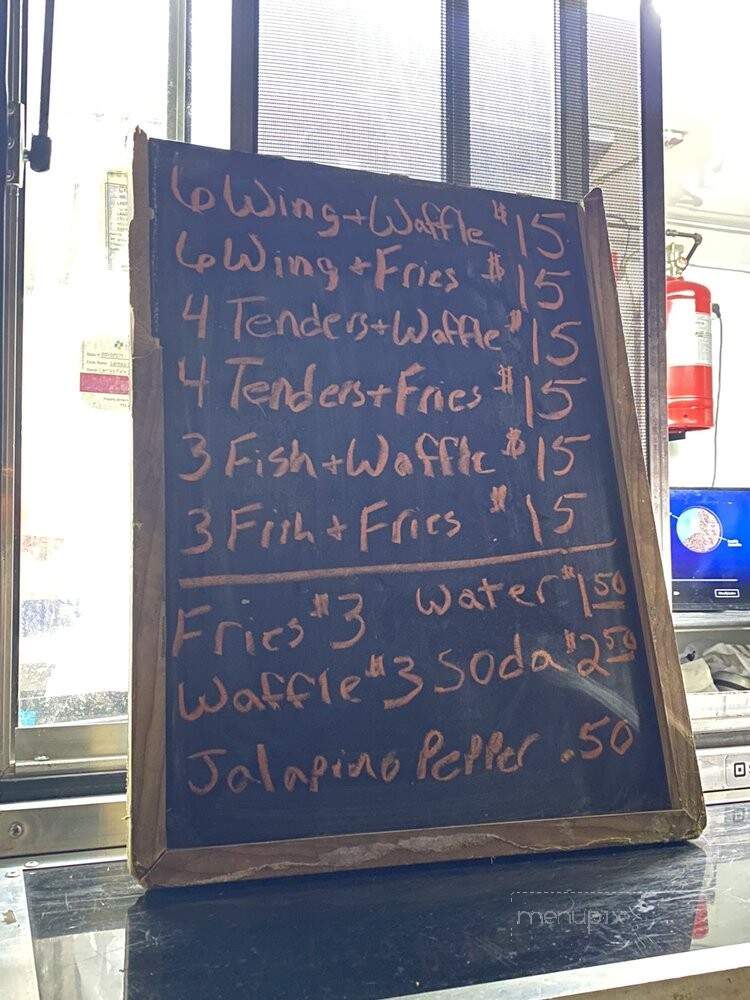 6 Wing + Waffle $15
6 Wing + Fries $15
4 Tenders + Waffle $15
4 Tenders + Fries $15
3 Fish + Waffle $15
3 Fish + Fries $15
Fries $3 Water $1.50
Waffle $3 Soda $2.50
Jalapino Pepper .50
menupix